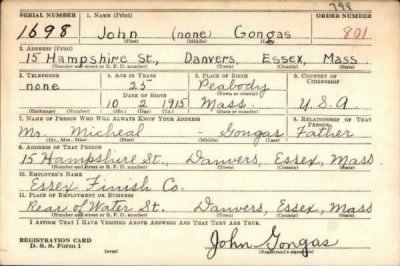 798
SERIAL NUMBER 1. NAME (Print) ORDER NUMBER
1698 John (none) Gongas 801
(First) (Middle) (Last)
2. ADDRESS (Print)
15 Hampshire St., Danvers, Essex, Mass.
(Number and street or R. F. D. number) (Town) (County) (State)
3. TELEPHONE 4. AGE IN YEARS 5. PLACE OF BIRTH 6. COUNTRY OF CITIZENSHIP
none 25 Peabody
DATE OF BIRTH (Town or county)
10 2 1915 Mass. U.S.A
(Exchange) (Number) (Mo.) (Day) (Yr.) (State or country)
7. NAME OF PERSON WHO WILL ALWAYS KNOW YOUR ADDRESS 8. RELATIONSHIP OF THAT PERSON
Mr. Micheal - Gongas Father
(Mr., Mrs., Miss) (First) (Middle) (Last)
9. ADDRESS OF THAT PERSON
15 Hampshire St., Danvers, Essex, Mass
(Number and street or R. F. D. number) (Town) (County) (State)
10. EMPLOYER'S NAME
Essex Finish Co.
11. PLACE OF EMPLOYMENT OR BUSINESS
Rear of Water St. Danvers, Essex, Mass
(Number and street or R. F. D. number) (Town) (County) (State)
I AFFIRM THAT I HAVE VERIFIED ABOVE ANSWERS AND THAT THEY ARE TRUE.
REGISTRATION CARD
D. S. S. Form 1 John Gongas
(Registrant's signature)